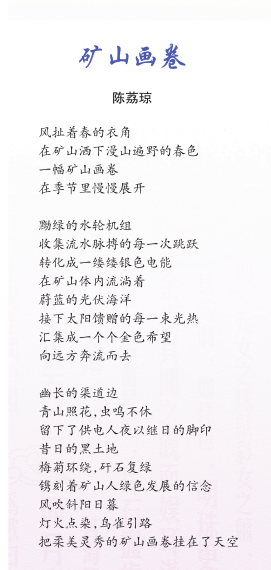 矿山画卷
陈荔琼
风扯着春的衣角
在矿山洒下漫山遍野的春色
一幅矿山画卷
在季节里慢慢展开
黝绿的水轮机组
收集流水脉搏的每一次跳跃
转化成一缕缕银色电能
在矿山体内流淌着
蔚蓝的光伏海洋
接下太阳馈赠的每一束光热
汇集成一个个金色希望
向远方奔流而去
幽长的渠道边
青山照花,虫鸣不休
留下了供电人夜以继日的脚印
昔日的黑土地
梅菊环绕,矸石复绿
镌刻着矿山人绿色发展的信念
风吹斜阳日暮
灯火点染,鸟雀引路
把柔美灵秀的矿山画卷挂在了天空